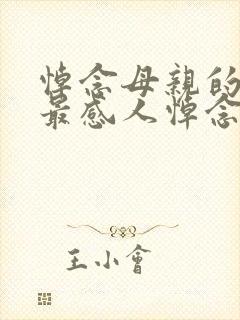 悼念母親的
最感人悼念
王小會